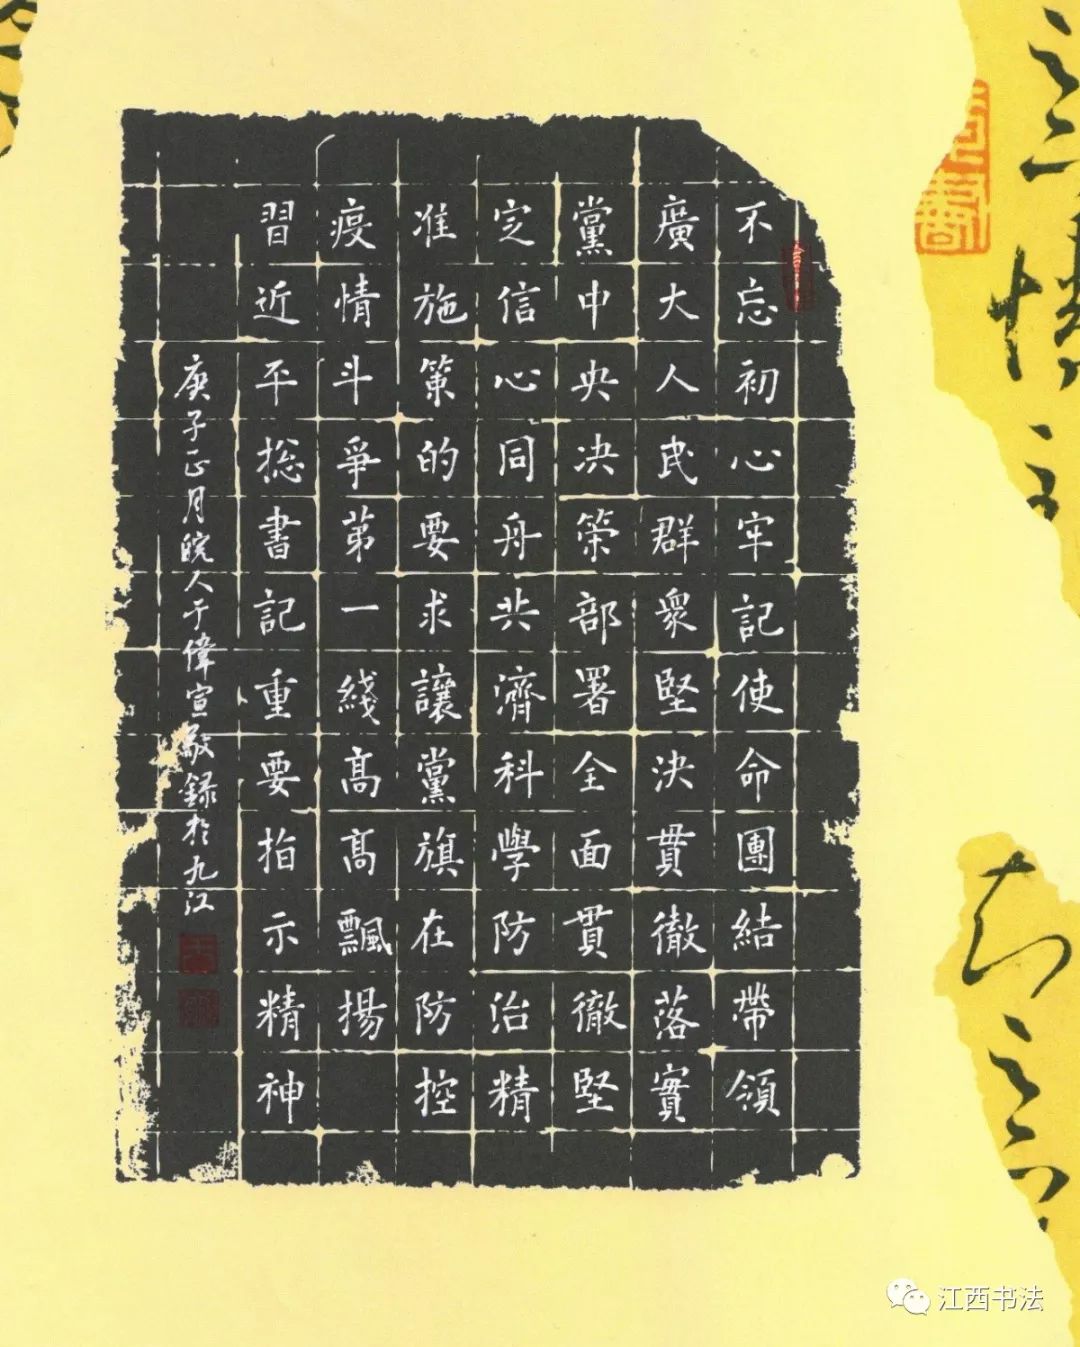 不忘初心牢記使命團結帶領
廣大人民群衆堅決貫徹落實
黨中央决策部署全面貫徹堅
定信心同舟共濟科學防治精
准施策的要求讓黨旗在防控
疫情斗爭第一綫高高飄揚
習近平總書記重要指示精神
庚子正月皖人于偉宣敬録於九江
江西书法